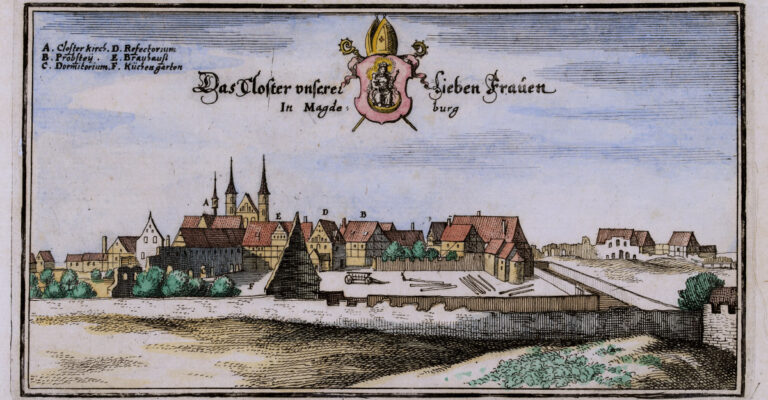 A. Closter kirch. D. Refectorium
B. Probsteÿ. E. Brauhauſz
C. Dormitorium. F. Küchengarten
Das Cloſter vnſerer Lieben Frauen
In Magdeburg
A
E
D
B
F